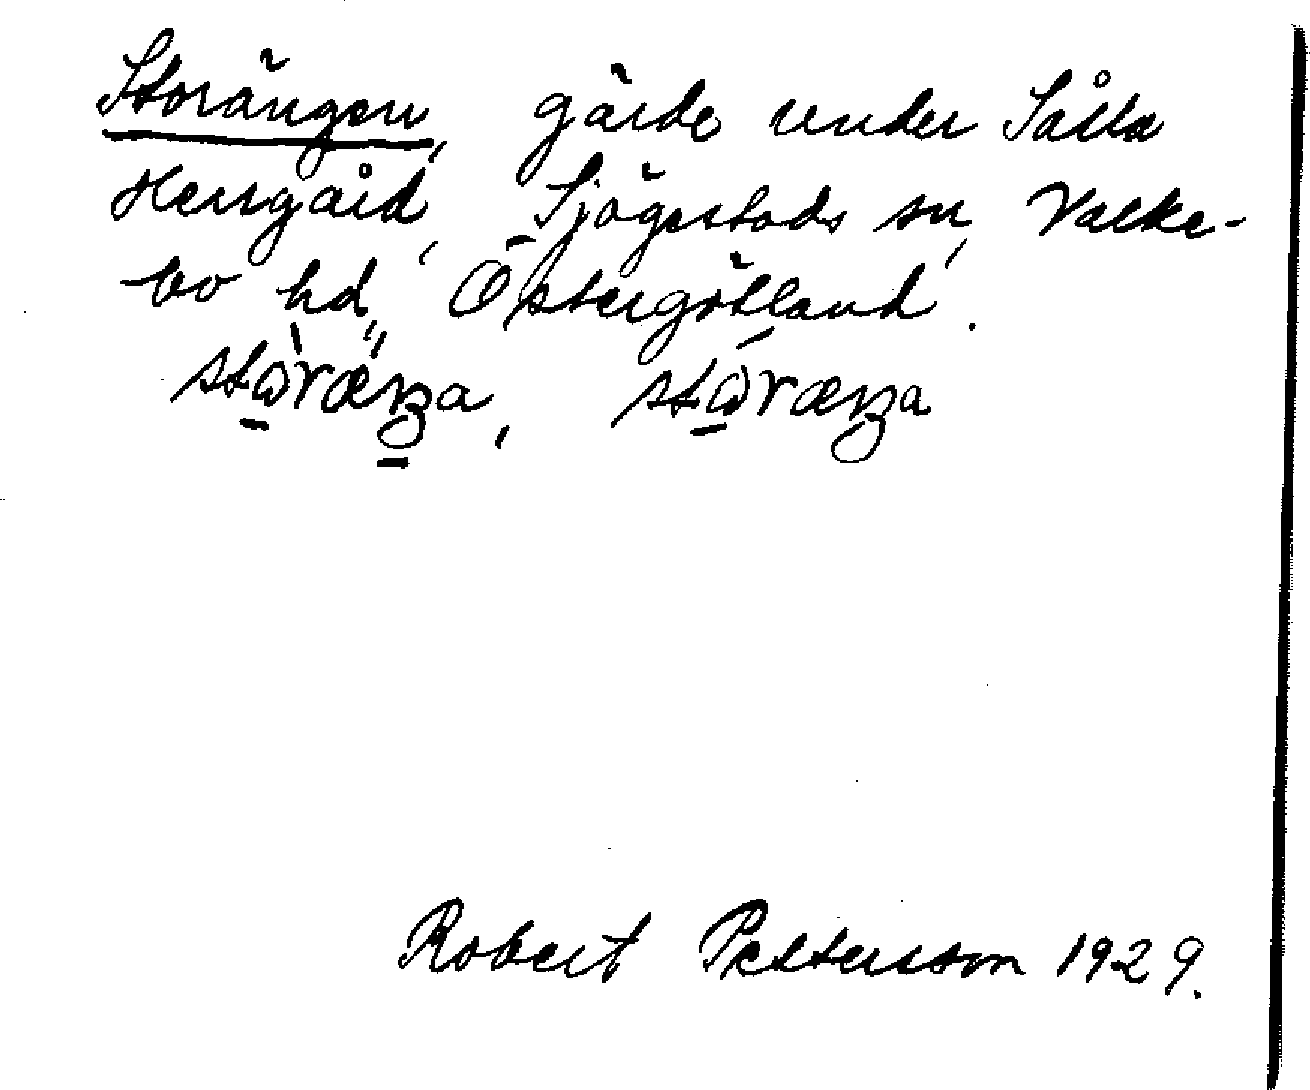 Storängen, gärde under Sålla
Herrgård, Sjögestads sn, Valke-
bo hd, Östergötland.
Robert Pettersson 1929.